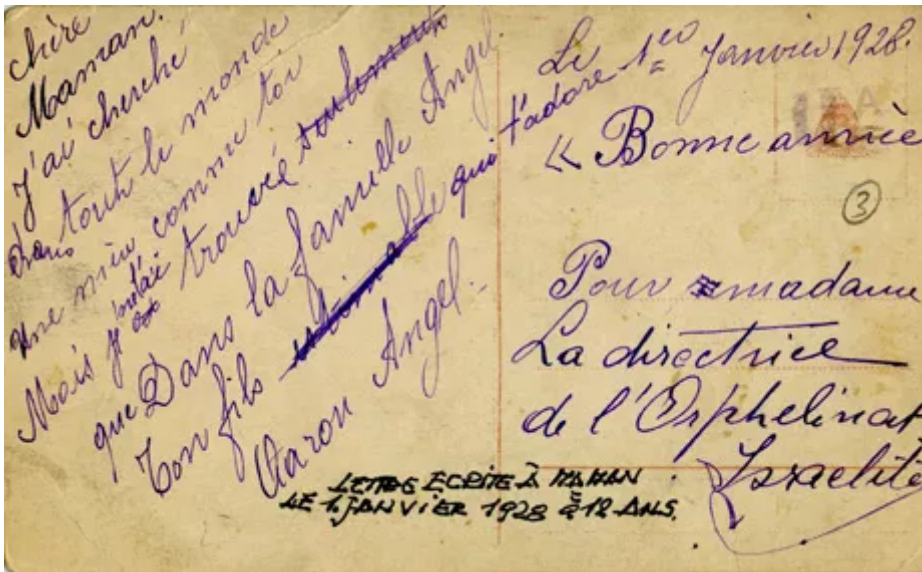 chère
Maman.
J'ai cherché
dans tout le monde
une mère comme toi
Mais je n'ai trouvé seulement
que Dans la famille Angel.
Ton fils qui t'adore
Aaron Angel.
Le 1er Janvier 1928.
« Bonne année
3
Pour madame
La directrice
de l'Orphelinat
Israelite
LETTRE ECRITE À MAMAN
LE 1 JANVIER 1928 à 12 ANS.